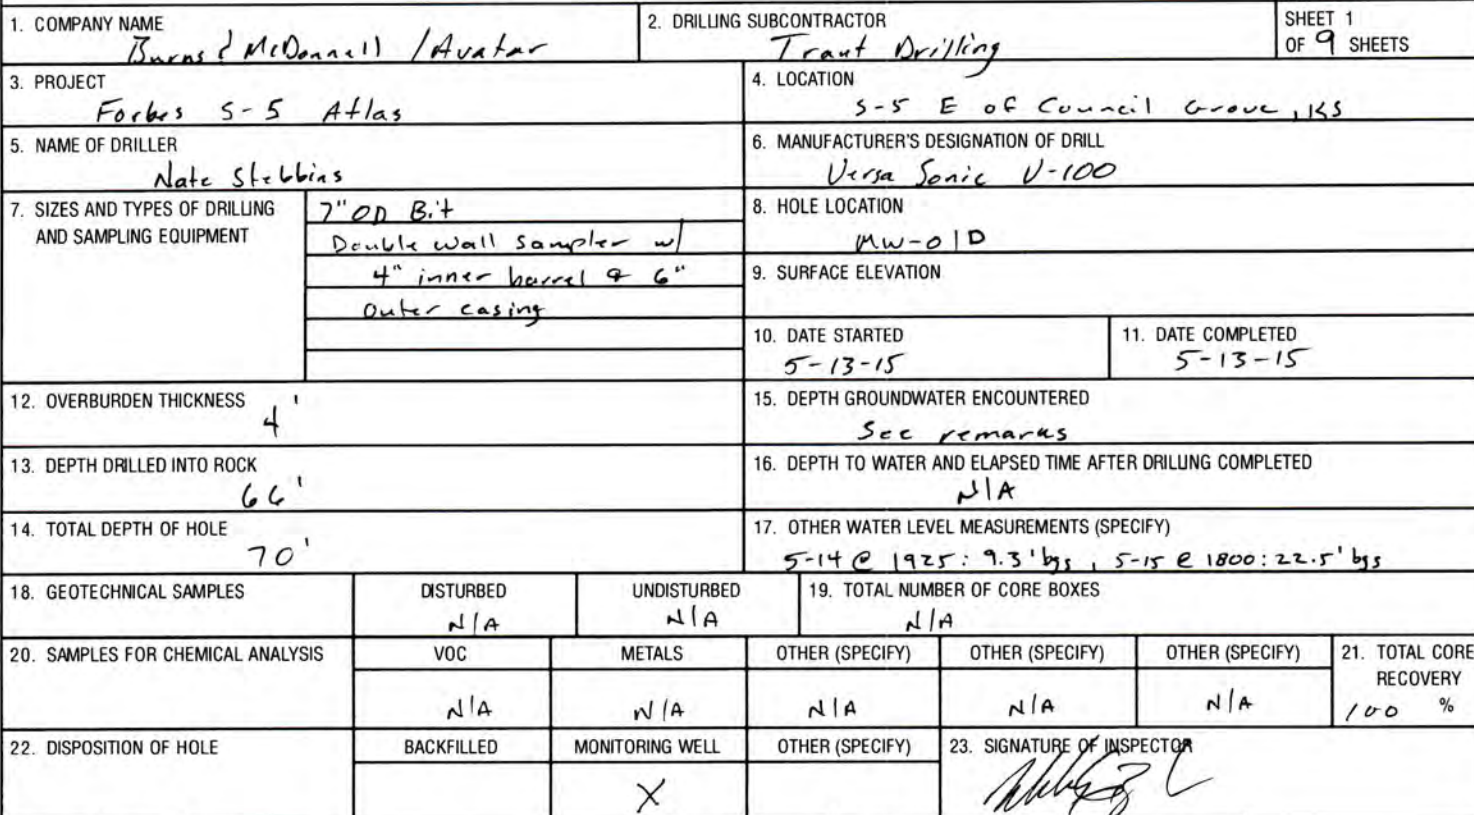 1. COMPANY NAME
Burns & McDonnell / Avatar
2. DRILLING SUBCONTRACTOR
Traut Drilling
SHEET 1
OF 9 SHEETS
3. PROJECT
Forbes S-5 Atlas
4. LOCATION
S-5 E of Council Grove, KS
5. NAME OF DRILLER
Nate Stebbins
6. MANUFACTURER'S DESIGNATION OF DRILL
Versa Sonic V-100
7. SIZES AND TYPES OF DRILLING
AND SAMPLING EQUIPMENT
7" OD Bit
Double wall sampler w/
4" inner barrel & 6"
outer casing
8. HOLE LOCATION
MW-01D
9. SURFACE ELEVATION
10. DATE STARTED
5-13-15
11. DATE COMPLETED
5-13-15
12. OVERBURDEN THICKNESS
4'
13. DEPTH DRILLED INTO ROCK
66'
14. TOTAL DEPTH OF HOLE
70'
15. DEPTH GROUNDWATER ENCOUNTERED
See remarks
16. DEPTH TO WATER AND ELAPSED TIME AFTER DRILLING COMPLETED
N/A
17. OTHER WATER LEVEL MEASUREMENTS (SPECIFY)
5-14 @ 1925: 9.3' bgs, 5-15 @ 1800: 22.5' bgs
18. GEOTECHNICAL SAMPLES
DISTURBED
N/A
UNDISTURBED
N/A
19. TOTAL NUMBER OF CORE BOXES
N/A
20. SAMPLES FOR CHEMICAL ANALYSIS
VOC
N/A
METALS
N/A
OTHER (SPECIFY)
N/A
OTHER (SPECIFY)
N/A
OTHER (SPECIFY)
N/A
21. TOTAL CORE
RECOVERY
100 %
22. DISPOSITION OF HOLE
BACKFILLED
MONITORING WELL
X
OTHER (SPECIFY)
23. SIGNATURE OF INSPECTOR